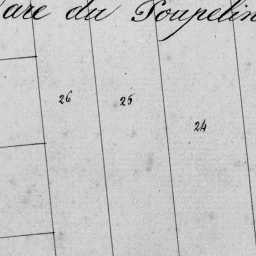 are du Poupelin
26 25 24